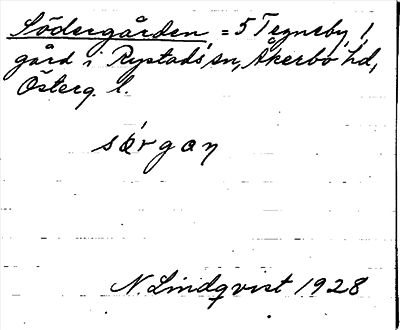 Södergården, = 5 Tegneby, 1
gård i Rystads sn, Åkerbo hd,
Österg. l.
sœ́rgaɳ
N. Lindqvist 1928